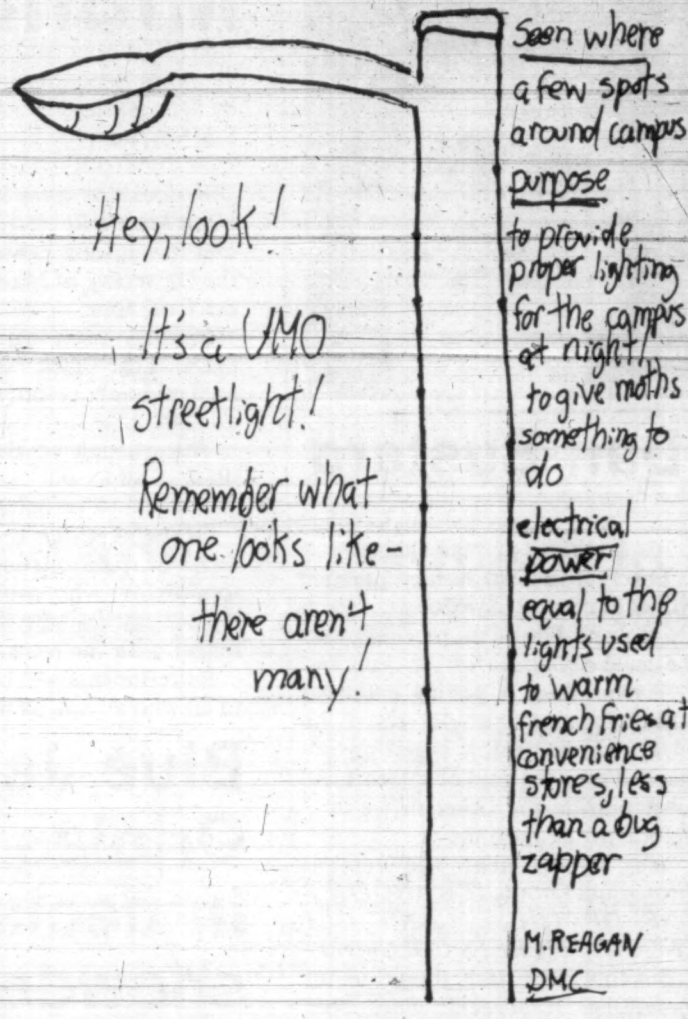 Hey, look!
It's a UMO
streetlight!
Remember what
one looks like-
there aren't
many!
Seen where
a few spots
around campus
purpose
to provide
proper lighting
for the campus
at night/
to give moths
something to
do
electrical
power
equal to the
lights used
to warm
french fries at
convenience
stores, less
than a bug
zapper
M. REAGAN
DMC